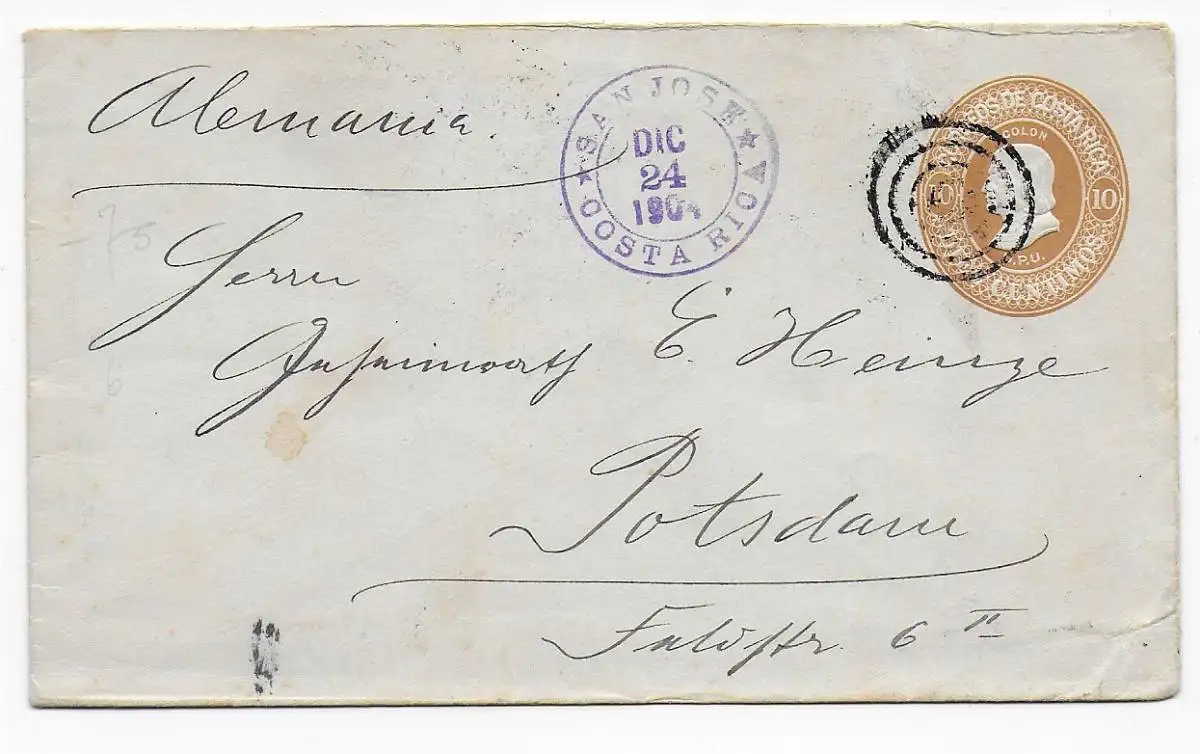 Alemania.
SAN JOSE
DIC
24
1904
COSTA RICA
COLON
DE COSTA RICA
10 10
U.P.U.
CENTIMOS
Herrn
Geheimrath E. Heinze
Potsdam
Feldstr. 6 II